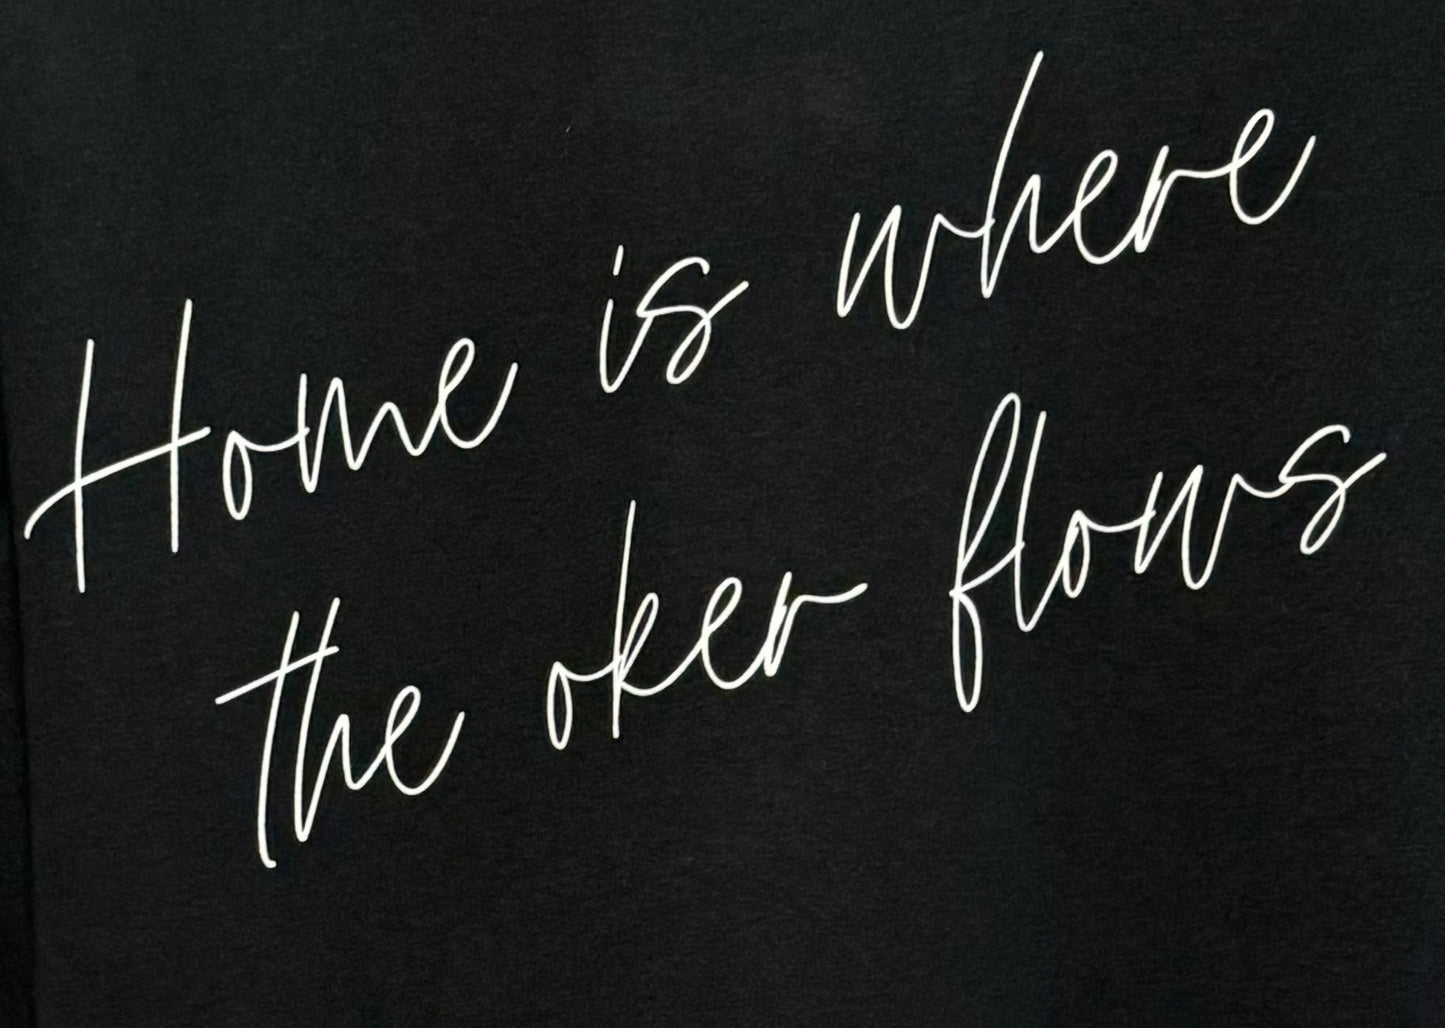 Home is where
the oker flows